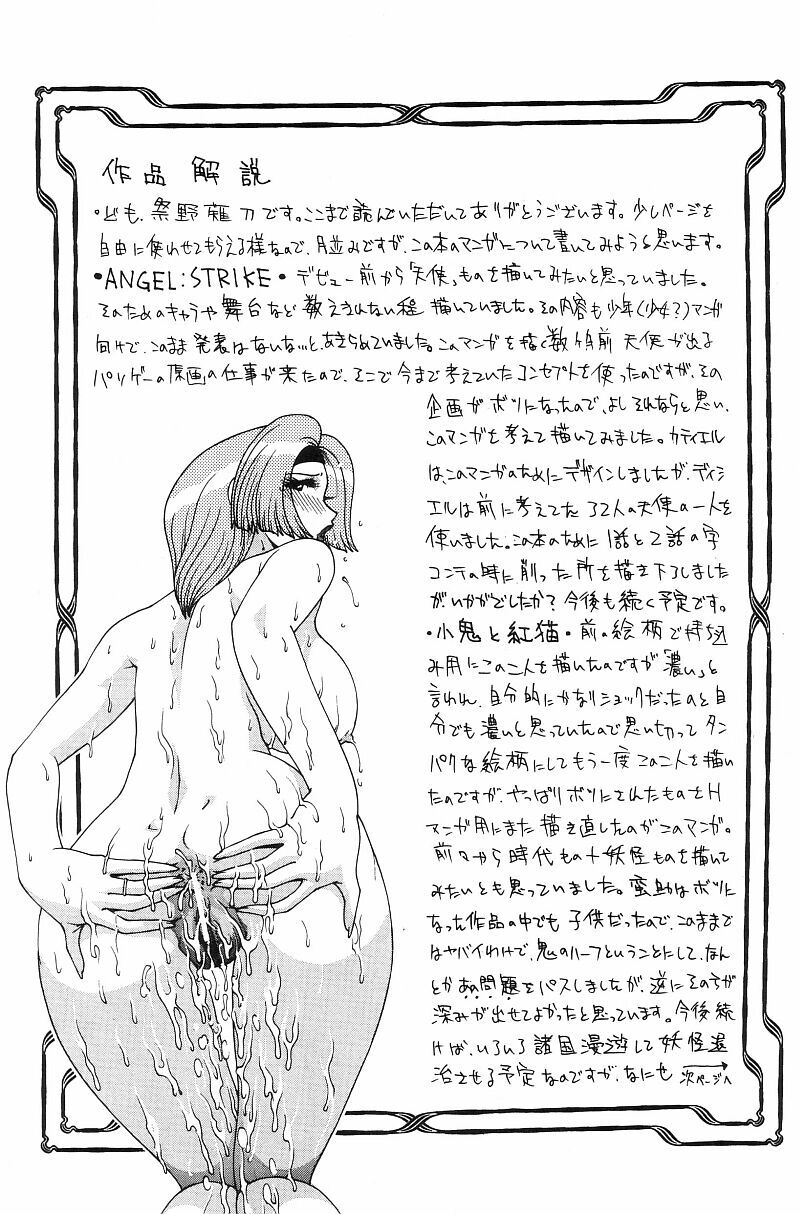 作品解説
・ども、祭野薙刀です。ここまで読んでいただいてありがとうございます。少しページを
自由に使わせてもらえる様なので、月並みですが、この本のマンガについて書いてみようと思います。
・ANGEL:STRIKE・デビュー前から「天使」ものを描いてみたいと思っていました。
そのためのキャラや舞台など数えきれない程描いていました。その内容も少年(少女?)マンガ
向けで、このまま発表はないな…と、あきらめていました。このマンガを描く数ヶ月前 天使が出る
パソゲーの原画の仕事が来たので、そこで今まで考えていたコンセプトを使ったのですが、その
企画がボツになったので、よしそれならと思い、
このマンガを考えて描いてみました。カティエル
は、このマンガのためにデザインしましたが、ディシ
エルは前に考えてた32人の天使の一人を
使いました。この本のために1話と2話の字
コンテの時に削った所を描き下ろしました
がいかがでしたか?今後も続く予定です。
・小鬼と紅猫・前の絵柄で持ち込
み用にこの二人を描いたのですが「濃い」と
言われ、自分的にかなりショックだったのと自
分でも濃いと思っていたので思い切ってタン
パクな絵柄にしてもう一度この二人を描い
たのですが、やっぱりボツにされたものをH
マンガ用にまた描き直したのがこのマンガ。
前々から時代もの+妖怪ものを描いて
みたいとも思っていました。蛮助はボツに
なった作品の中でも子供だったので、このままで
はヤバイわけで、鬼のハーフということにして、なん
とかあの問題をパスしましたが、逆にその方が
深みが出せてよかったと思っています。今後続
けば、いろいろ諸国漫遊して妖怪退
治させる予定なのですが、なにも 次ページへ